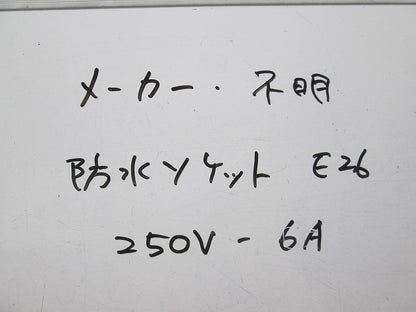 メーカー・不明
防水ソケット E26
250V - 6A